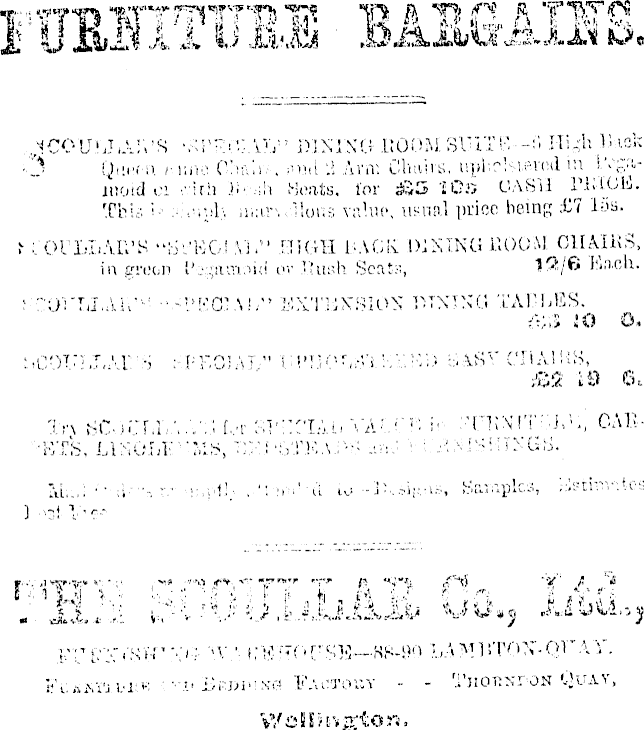 FURNITURE BARGAINS.
SCOULLAR'S "SPECIAL" DINING ROOM SUITE—6 High Back
Queen Anne Chairs, and 2 Arm Chairs, upholstered in Pega-
moid or with Rush Seats, for £5 10s CASH PRICE.
This is simply marvellous value, usual price being £7 15s.
SCOULLAR'S "SPECIAL" HIGH BACK DINING ROOM CHAIRS,
in green Pegamoid or Rush Seats, 12/6 Each.
SCOULLAR'S "SPECIAL" EXTENSION DINING TABLES,
10 0.
SCOULLAR'S "SPECIAL" UPHOLSTERED EASY CHAIRS,
£2 19 6.
Try SCOULLAR'S for SPECIAL VALUE in FURNITURE, CAR-
PETS, LINOLEUMS, BEDSTEADS and FURNISHINGS.
Mail orders promptly attended to—Designs, Samples, Estimates
Post Free
THE SCOULLAR Co., Ltd.,
FURNISHING WAREHOUSE—88-90 LAMBTON-QUAY.
FURNITURE AND BEDDING FACTORY - - THORNDON QUAY,
Wellington.